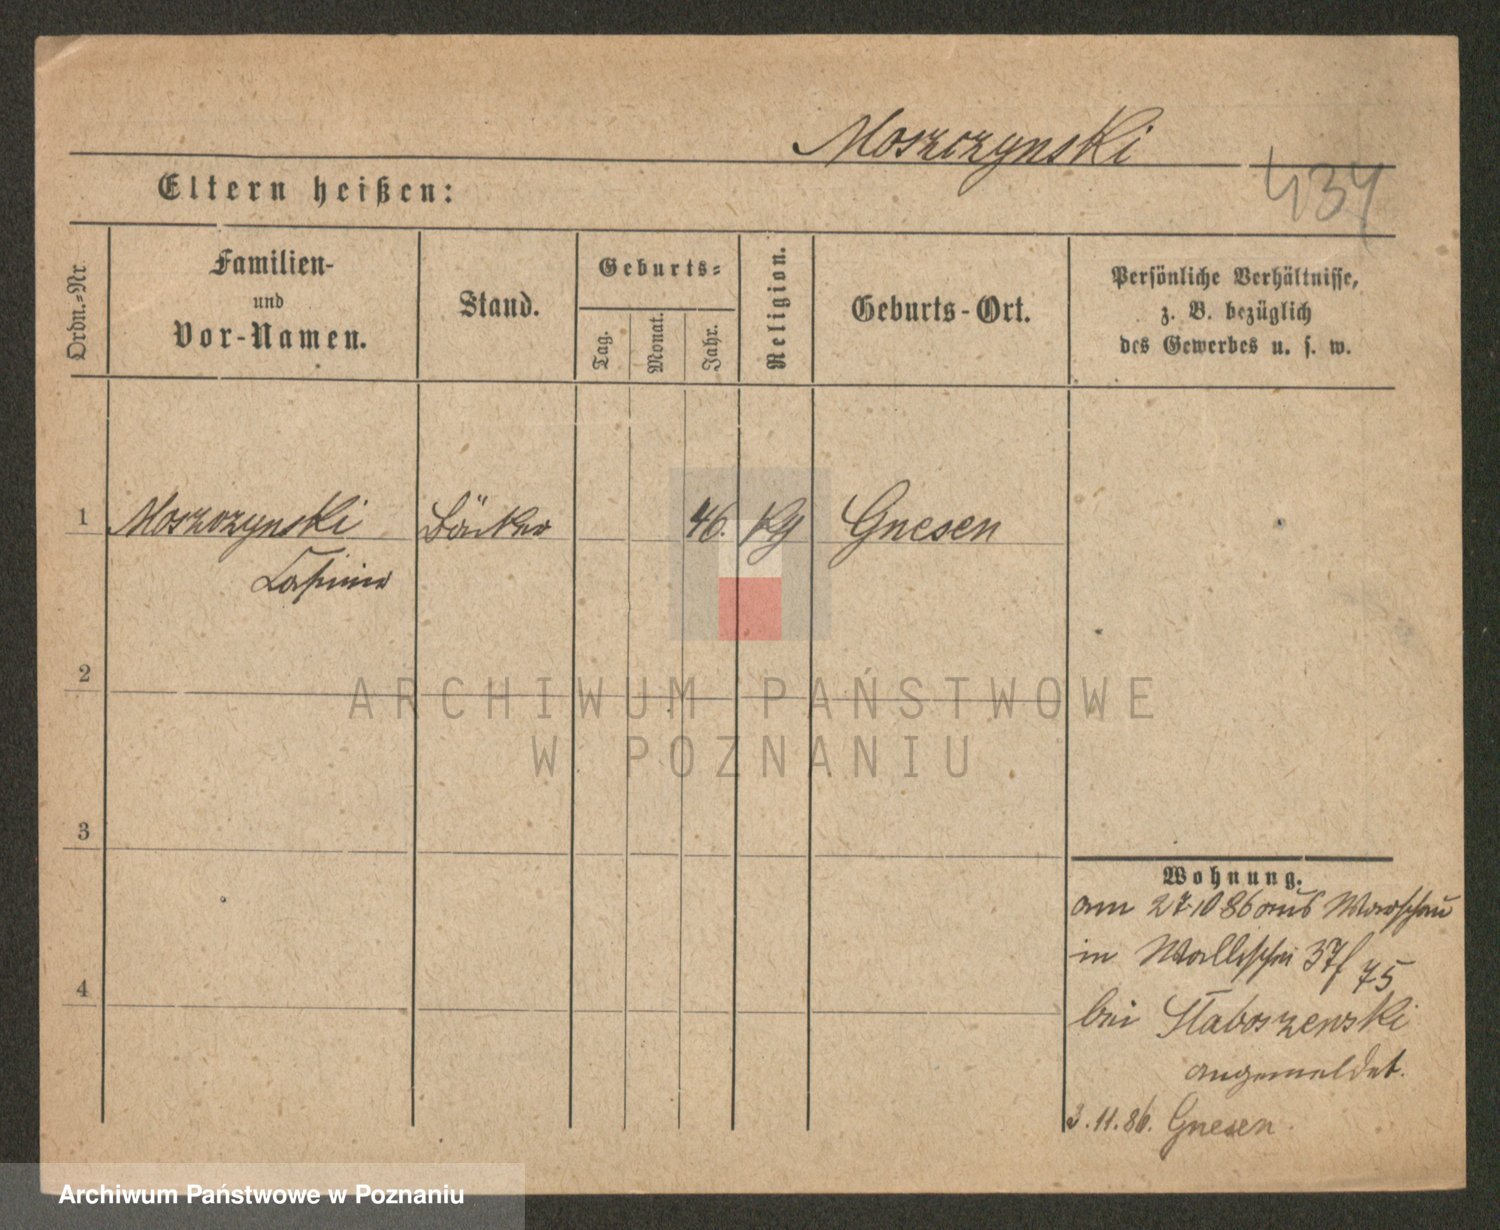 Moszczynski
434
Eltern heißen:
Ordn.-Nr.
Familien-
und
Vor-Namen.
Stand.
Geburts-
Tag.
Monat.
Jahr.
Religion.
Geburts-Ort.
Persönliche Verhältnisse,
z. B. bezüglich
des Gewerbes u. s. w.
1 Moszczynski Bäcker 46. Gnesen
Casimir
2
ARCHIWUM PAŃSTWOWE
W POZNANIU
3
4
Wohnung.
am 27.10 86 aus Warschau
in Wallischei 37/75
bei Staboszewski
angemeldet.
3.11.86. Gnesen
Archiwum Państwowe w Poznaniu